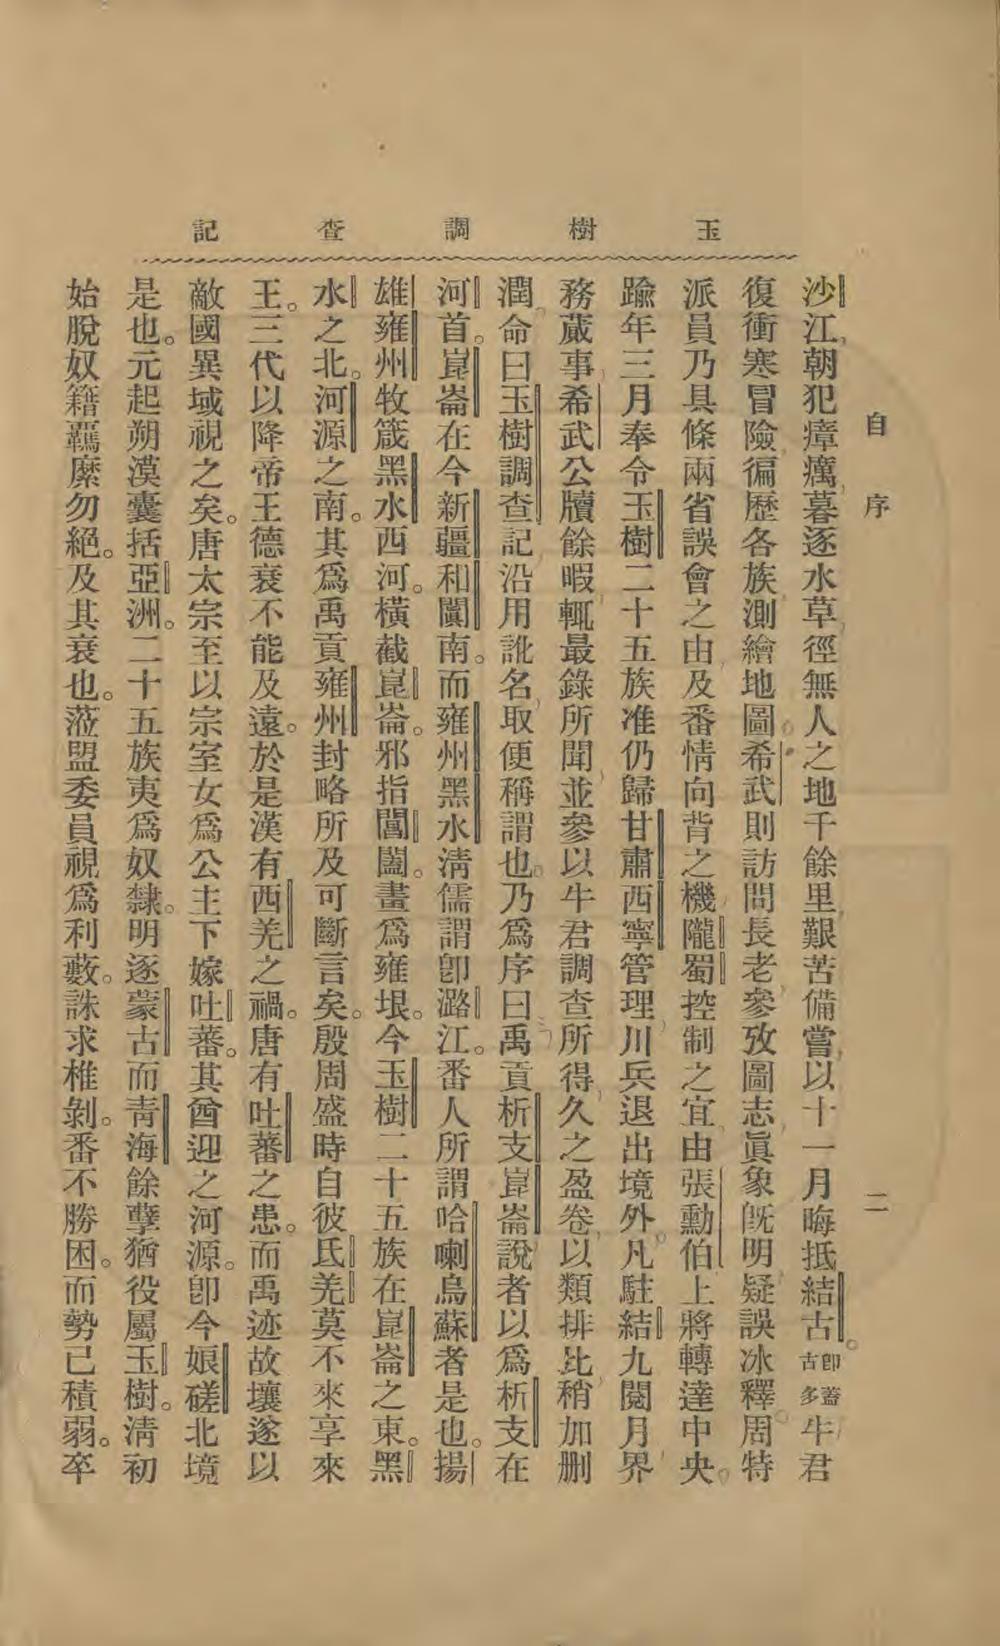 玉樹調查記
自序
二
沙江朝犯瘴癘暮逐水草徑無人之地千餘里艱苦備嘗以十一月晦抵結古。卽蓋古多牛君
復衝寒冒險徧歷各族測繪地圖。希武則訪問長老參攷圖志眞象旣明疑誤冰釋。周特
派員乃具條兩省誤會之由及番情向背之機隴蜀控制之宜由張勳伯上將轉達中央。
踰年三月奉令玉樹二十五族准仍歸甘肅西寧管理川兵退出境外。凡駐結九閱月界
務蕆事希武公牘餘暇輒最錄所聞並參以牛君調查所得久之盈卷以類排比稍加刪
潤命曰玉樹調查記沿用訛名取便稱謂也。乃爲序曰禹貢析支崑崙說者以爲析支在
河首。崑崙在今新疆和闐南。而雍州黑水淸儒謂卽潞江。番人所謂哈喇烏蘇者是也。揚
雄雍州牧箴黑水西河。橫截崑崙。邪指閶闔。畫爲雍垠。今玉樹二十五族在崑崙之東。黑
水之北。河源之南。其爲禹貢雍州封略所及可斷言矣。殷周盛時自彼氐羌莫不來享來
王。三代以降帝王德衰不能及遠。於是漢有西羌之禍。唐有吐蕃之患。而禹迹故壤遂以
敵國異域視之矣。唐太宗至以宗室女爲公主下嫁吐蕃。其酋迎之河源。卽今娘磋北境
是也。元起朔漠囊括亞洲。二十五族夷爲奴隸。明逐蒙古而靑海餘孽猶役屬玉樹。淸初
始脫奴籍羈縻勿絕。及其衰也。蒞盟委員視爲利藪。誅求椎剝。番不勝困。而勢已積弱。卒